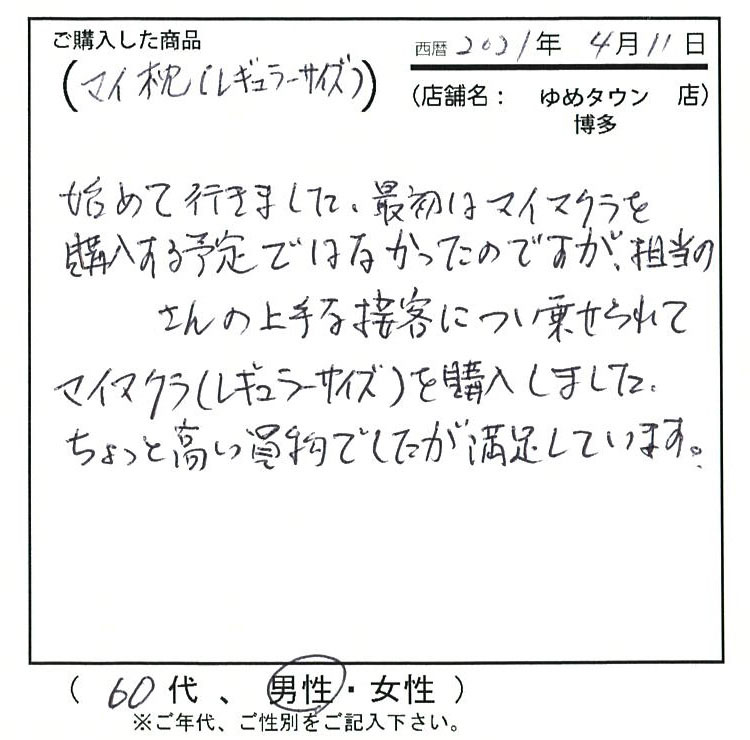 ご購入した商品
(マイ枕(レギュラーサイズ))
西暦 2021年 4月11日
(店舗名: ゆめタウン 店)
博多
始めて行きました、最初はマイマクラを
購入する予定ではなかったのですが、担当の
さんの上手な接客につい乗せられて
マイマクラ(レギュラーサイズ)を購入しました、
ちょっと高い買物でしたが満足しています。
( 60代、 男性・女性 )
※ご年代、ご性別をご記入下さい。